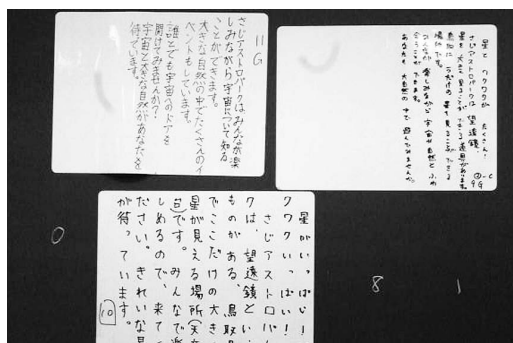 11G
さじアストロパークはみんなが楽
しみながら宇宙について知る
ことができます。
大きな自然の中でたくさんのイ
ベントもしています。
誰とでも宇宙へのドアを
開けてみませんか？
宇宙と大きな自然があなたを
待っています。
星と ワクワクが たくさん！
さじアストロパークは 望遠鏡で
星を 大きく 見ることが できる 道具があります。
あなたも 大自然の 中で 遊んでみませんか。
9G
星がいっぱい！
クワクいっぱい！
さじアストロパー
クは、望遠鏡とい
ものがある、鳥取
でここだけの大き
星が見える場所(天
台)です。みんなで楽
しめるので、来て
ださい。きれいな星
が待っています。
10
0
8
1